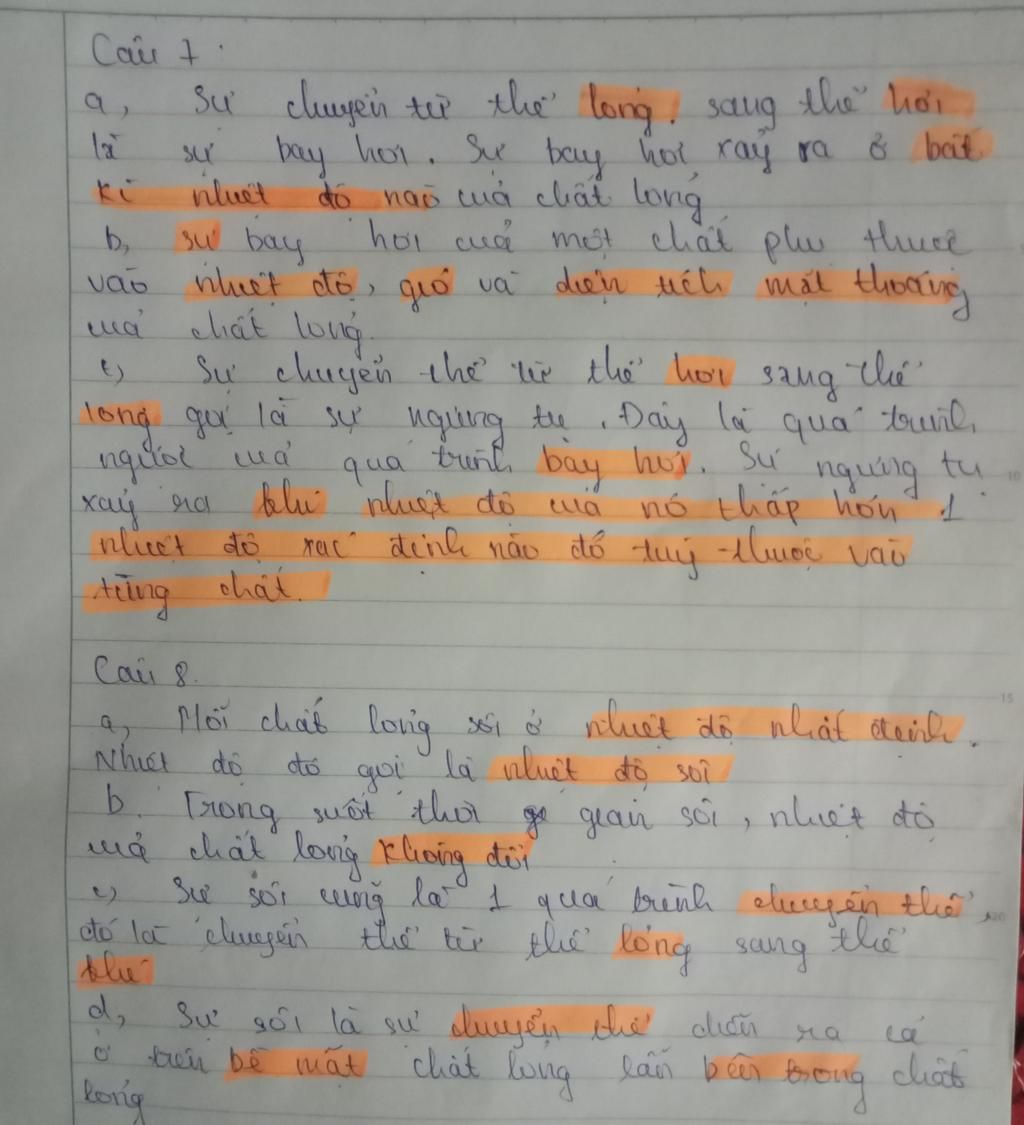 Câu 7.
a, Sự chuyển từ thể lỏng sang thể hơi
là sự bay hơi. Sự bay hơi xảy ra ở bất
kì nhiệt độ nào của chất lỏng
b, sự bay hơi của một chất phụ thuộc
vào nhiệt độ, gió và diện tích mặt thoáng
của chất lỏng.
c) Sự chuyển thể từ thể hơi sang thể
lỏng gọi là sự ngưng tụ. Đây là quá trình
ngược của quá trình bay hơi. Sự ngưng tụ
xảy ra khi nhiệt độ của nó thấp hơn 1
nhiệt độ xác định nào đó tuỳ thuộc vào
từng chất.
Câu 8.
a, Mỗi chất lỏng sôi ở nhiệt độ nhất định.
Nhiệt độ đó gọi là nhiệt độ sôi
b. Trong suốt thời gian sôi, nhiệt độ
của chất lỏng không đổi
c) Sự sôi cũng là 1 quá trình chuyển thể,
đó là chuyển thể từ thể lỏng sang thể
khí
d, Sự sôi là sự chuyển thể diễn ra cả
ở trên bề mặt chất lỏng lẫn bên trong chất
lỏng